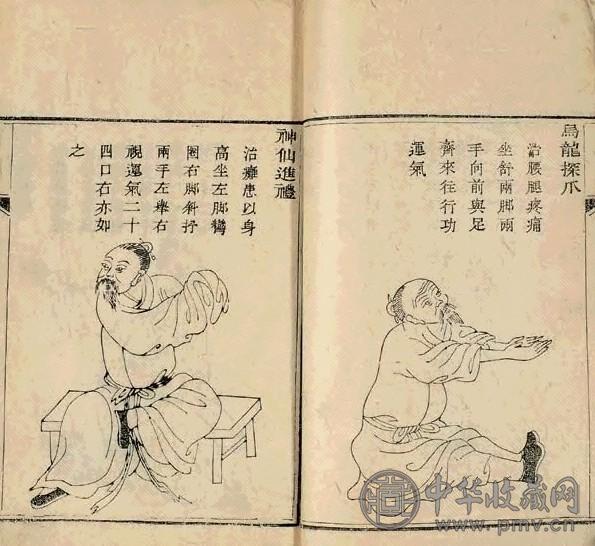 烏龍探爪
治腰腿疼痛
坐舒兩脚兩
手向前與足
齊來往行功
運氣
神仙進禮
治癱患以身
高坐左脚彎
圈右脚斜抒
兩手左舉右
視運氣二十
四口右亦如
之
中华收藏网
www.pmv.cn